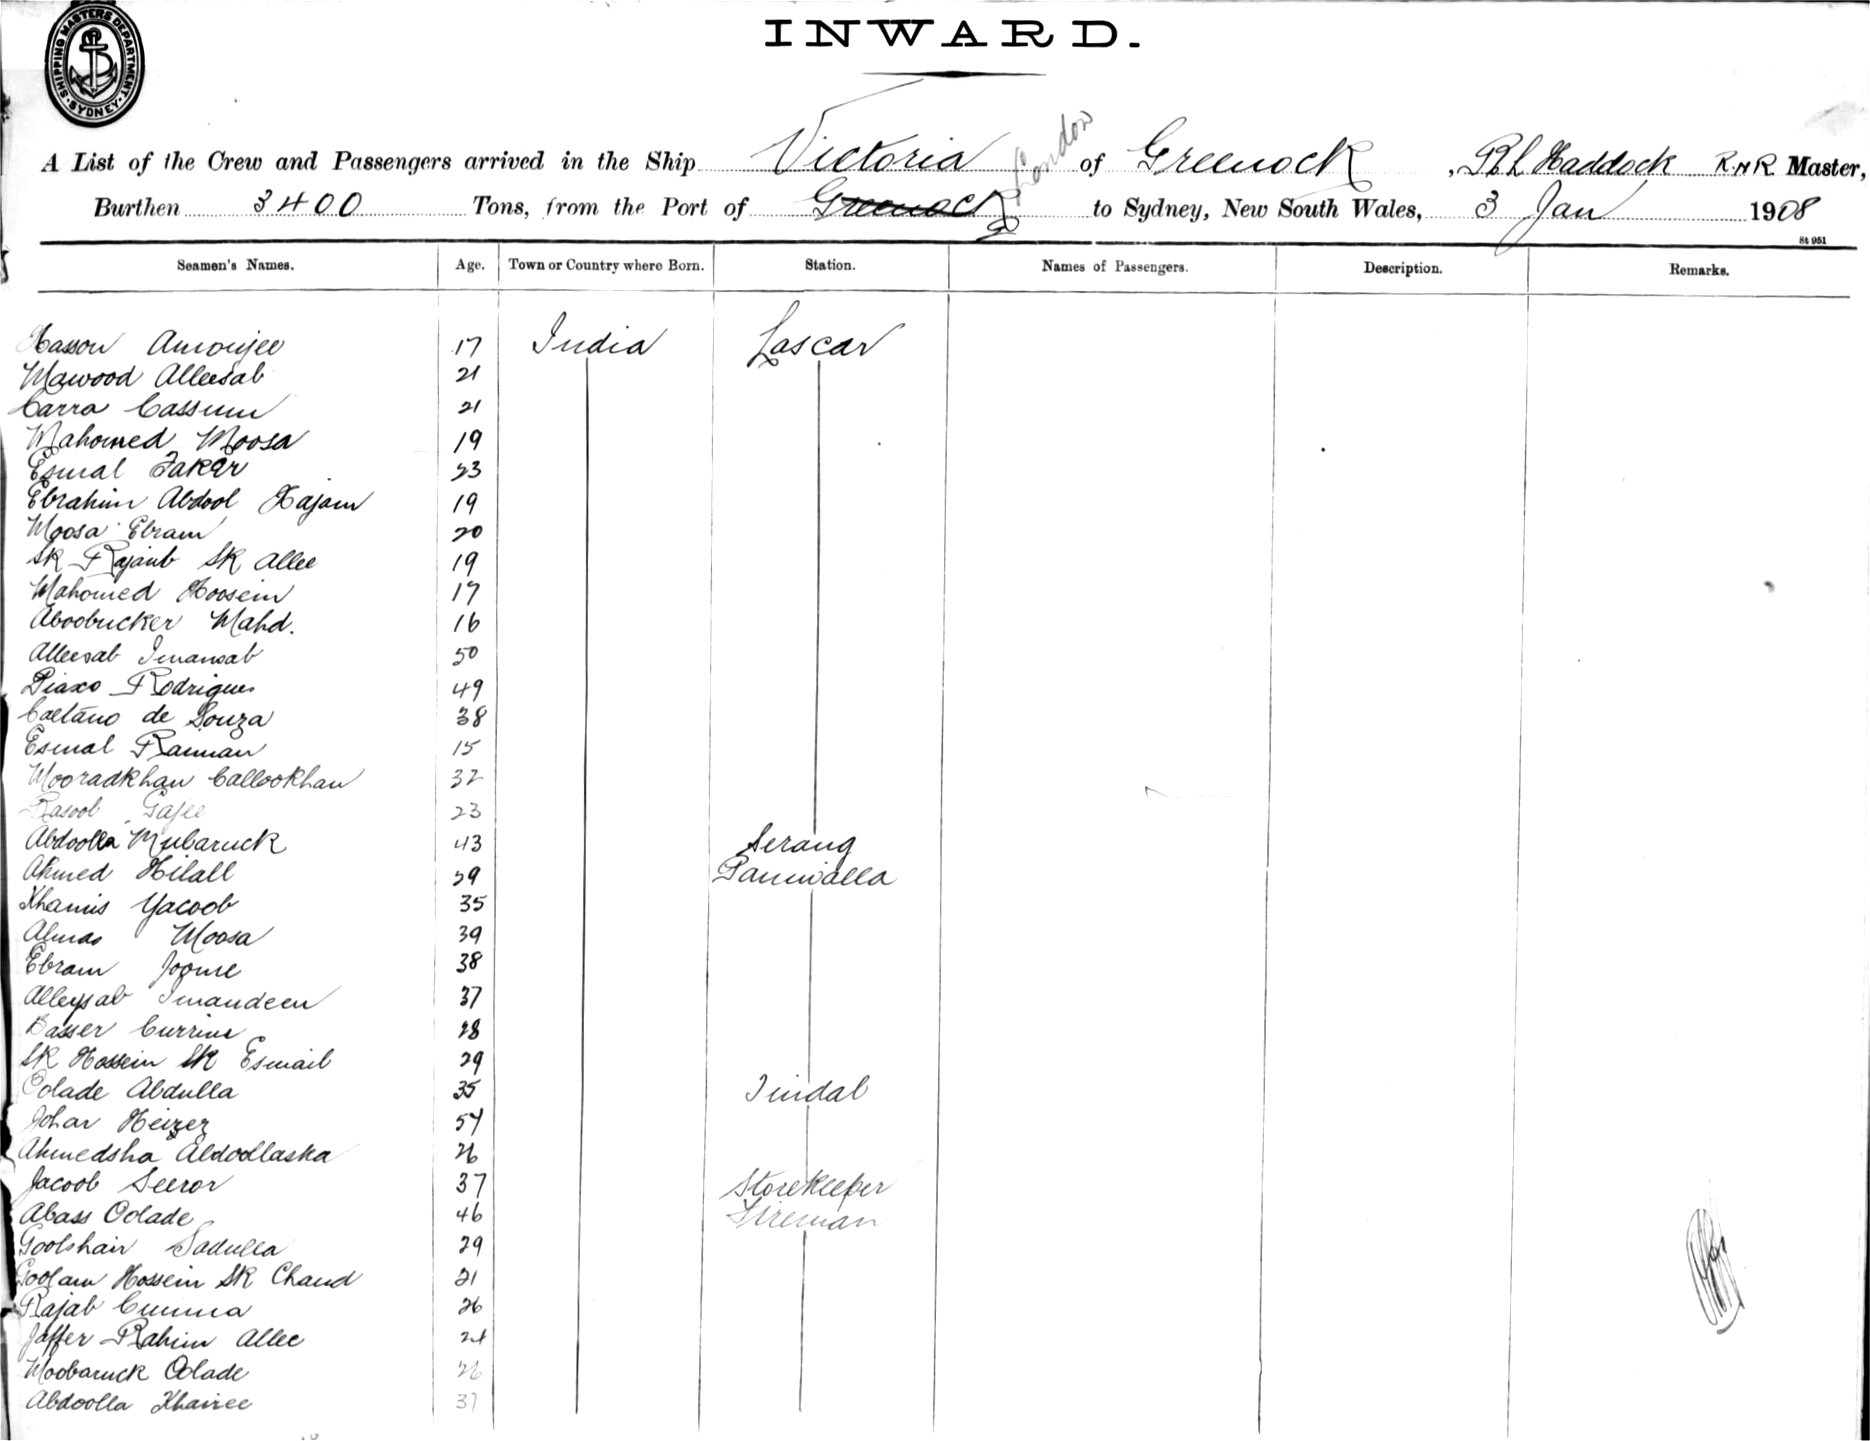 SHIPPING MASTERS DEPARTMENT · SYDNEY ·
INWARD.
A List of the Crew and Passengers arrived in the Ship Victoria of Greenock, Haddock R.N.R Master,
London
Burthen 3400 Tons, from the Port of Greenock to Sydney, New South Wales, 3 Jan 1908
St 951
Seamen's Names. Age. Town or Country where Born. Station. Names of Passengers. Description. Remarks.
Hasson Amonjee 17 India Lascar
Mawood Alleesab 21
Carra Cassum 21
Mahomed Moosa 19
Esmal Faker 23
Ebrahim Abdool Hajam 19
Moosa Ebram 20
Sk Rajaub Sk Allee 19
Mahomed Hoosein 17
Aboobucker Mahd. 16
Alleesab Imamsab 50
Rodrigues 49
Caetano de Souza 38
Esmal Ramman 15
Mooradkhan Callookhan 32
Rasool Gajee 23
Abdoolla Mubaruck 43 Serang
Ahmed Hilall 29 Paniwalla
Khamis Yacoob 35
Almas Moosa 39
Ebram Joome 38
Alleysab Imandeen 37
Basser Currim 28
Sk Hossein Sk Esmail 29
Oolade Abdulla 35 Tindal
Johar Heizez 54
Ahmedsha Abdoollasha 26
Jacoob Seeror 37 Storekeeper
Abass Oolade 46 Fireman
Goolshair Sadulla 29
Goolam Hossein Sk Chand 21
Rajab Cumma 26
Jaffer Rahim Allee 24
Moobaruck Oolade 26
Abdoolla Khairee 37